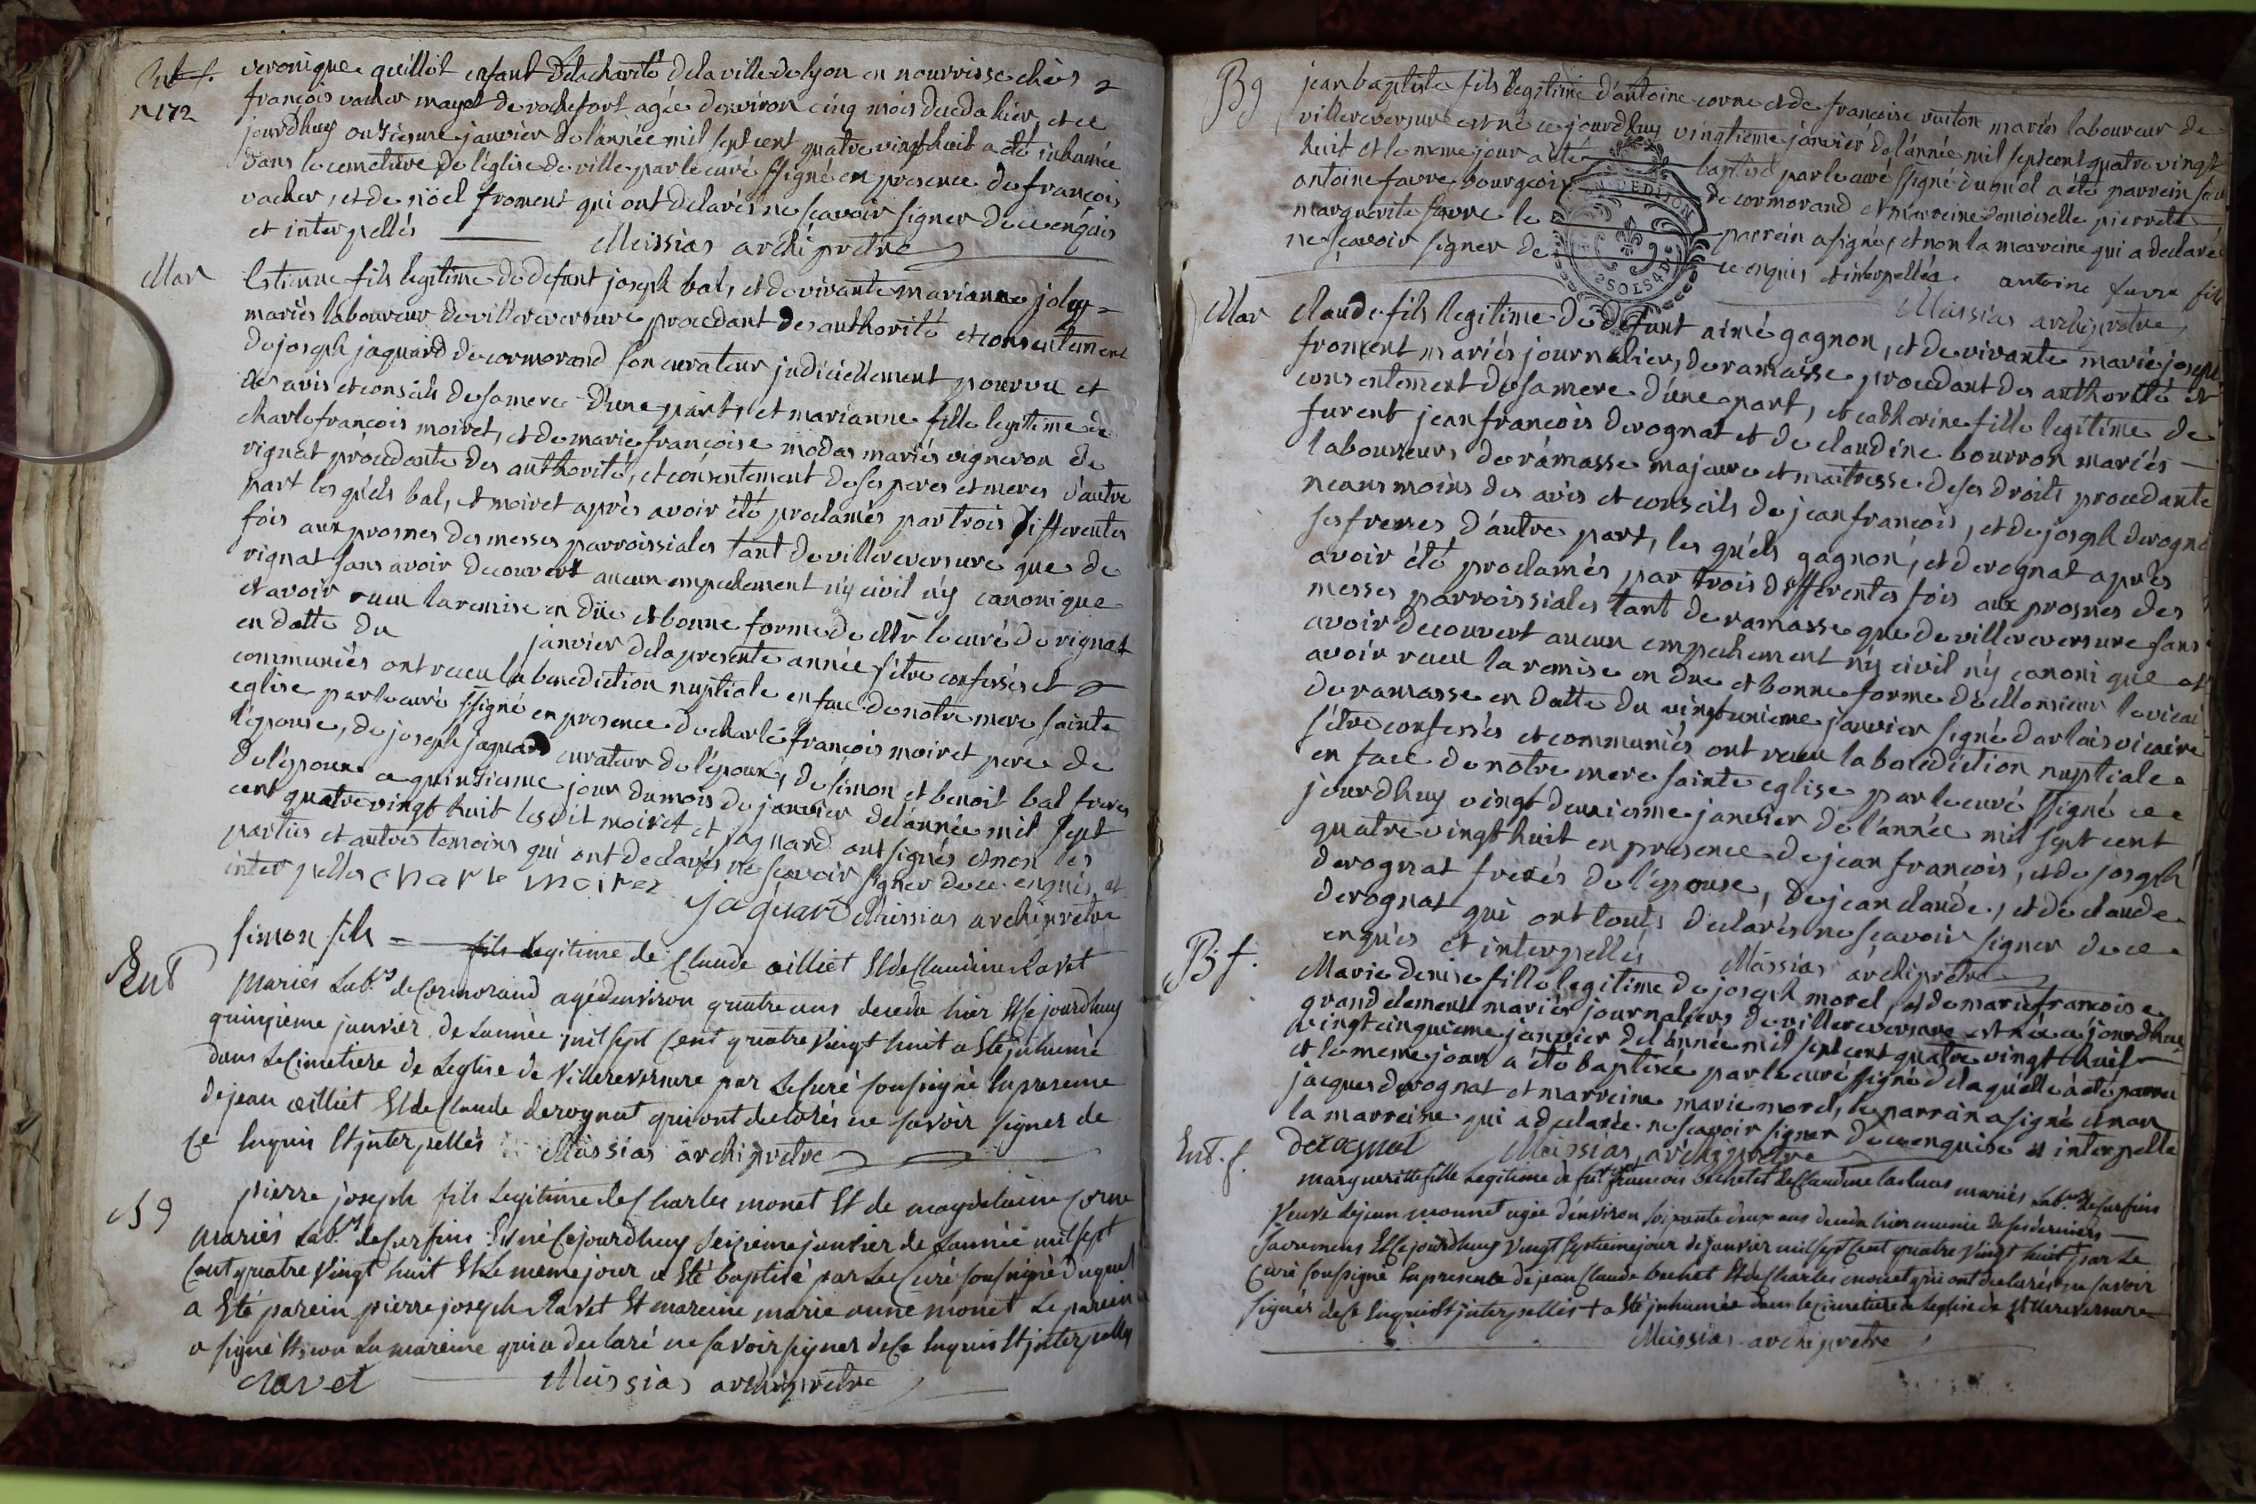 Ent f. veronique guillot enfant de la charité de la ville de lyon en nourrisse chés
n 172 françois vacher mayet de rochefort agée denviron cinq mois decedahier, et ce
jourdhuy onsiesme janvier de l'année mil sept cent quatre vingt huit a été inhumée
dans le cemetière de l'église de ville par le curé ssigné en presence de françois
vacher, et de nöel froment qui ont declarés ne sçavoir signer de ce enquis
et interpellés Meissias archiprétre
Mar Estienne fils legitime de defunt joseph bal, et de vivante marianne joly
mariés laboureur de villereversure procedant des authorité et consentement
de joseph jaquard de cormorand son curateur judiciellement pourvu et
des avis et conseils de sa mere d'une part, et marianne fille legitime de
charle françois moiret, et de marie françoise modas mariés vigneron de
rignat procedante des authorité, et consentement de ses peres et meres d'autre
part les quels bal, et moiret après avoir été proclamés par trois differentes
fois aux prosnes des messes parroissiales tant de villereversure que de
rignat sans avoir decouvert aucun empechement n'y civil n'y canonique
et avoir reeu la remise en düe et bonne forme de Mr le curé de rignat
en datte du janvier de la presente année s'étre confessés et
communiés ont reeeu la benediction nuptiale en face de notre mere sainte
eglise par le curé ssigné en presence de charle françois moiret pere de
l'épouse, de joseph jaquard curateur de l'époux, de simon et benoit bal freres
de l'époux ce quinsiesme jour du mois de janvier de l'année mil sept
cent quatre vingt huit lesdit moiret et jaquard ont signés et non les
parties et autres temoins qui ont declarés ne sçavoir signer de ce enquis et
interpellés charle moiret jaquard Meissias archiprétre
Ent simon fils = fils legitime de Claude œilliet Et de Claudine Ravet
mariés Labrs de Cormorand agé denviron quatre ans decedé hier Et cejourdhuy
quinzieme janvier de Lannée mil sept Cent quatre Vingt huit a Eté inhumé
dans Le Cimetiere de Leglise de Villereversure par Le Curé soussigné En presence
de jean œilliet Et de Claude derognat qui ont declarés ne savoir signer de
Ce Enquis Et interpellés Meissias archiprétre
B g pierre joseph fils Legitime de Charles monet Et de magdelaine Corne
mariés Labrs de Curfins Est né Cejourdhuy seizieme janvier de Lannée mil sept
Cent quatre Vingt huit Et Le meme jour a Eté baptisé par Le Curé soussigné duquel
a Eté parein pierre joseph Ravet Et mareine marie anne monet Le parein
a signé Et non La mareine qui a declaré ne savoir signer de Ce Enquis Et interpellée
Ravet Meissias archiprétre
B g jean baptiste fils legitime d'antoine corne et de françoise vuiton mariés laboureur de
villereversure est né ce jourdhuy vingtieme janvier de l'année mil sept cent quatre vingt
huit et le meme jour a été baptisé par le curé ssigné duquel a été parrein
antoine favre bourgeois de cormorand et marreine demoiselle pierrette
marguerite favre le parrein a signé, et non la marreine qui a declaré
ne sçavoir signer de ce enquis et interpellée antoine favre fils
Meissias archiprétre
GEN. DEDION
2 SOLS 4 D
Mar claude fils legitime de defunt aimé gagnon, et de vivante marie joseph
froment mariés journalier, de ramasse, procedant des authorité et
consentement de sa mere d'une part, et catherine fille legitime de
furent jean françois derognat et de claudine bourron mariés
laboureurs de ramasse majeure et maitresse de ses droits procedante
neansmoins des avis et conseils de jean françois, et de joseph derogna
ses freres d'autre part, les quels gagnon, et derognat après
avoir été proclamés par trois differentes fois aux prosnes des
messes parroissiales tant de ramasse que de villereversure sans
avoir decouvert aucun empechement n'y civil n'y canonique et
avoir reeu la remise en due et bonne forme de Monsieur le vicai
de ramasse en datte du vingt unieme janvier signé darlais vicaire
s'étre confessés et communiés ont reeu la benediction nuptiale
en face de notre mere sainte eglise par le curé ssigné ce
jourdhuy vingt deuxiesme janvier de l'année mil sept cent
quatre vingt huit en presence de jean françois, et de joseph
derognat freres de l'épouse, de jean claude, et de claude
derognat qui ont touts declarés ne sçavoir signer de ce
enqués et interpellés Meissias archiprétre
B f. Marie denise fille legitime de joseph morel, et de marie françoise
grandclement mariés journaliers de villereversure est née ce jourdhuy
vingt cinquieme janvier de l'année mil sept cent quatre vingt huit
et le meme jour a été baptisée par le curé ssigné de la quelle a été parrein
jacques derognat et marreine marie morel, le parrein a signé et non
la marreine qui a declarée ne sçavoir signer de ce enquise et interpellée
derognat Meissias archiprétre
Ent. f. marguerite fille Legitime de feu francois bechet et de Claudine mariés Labrs de Curfins
Veuve de jean monnet agée d'environ soixante deux ans decedée hier munie de ses derniers
sacremens Et Cejourdhuy Vingt septieme jour de janvier mil sept Cent quatre Vingt huit + par Le
Curé soussigné En presence de jean Claude bechet Et de Charles monet qui ont declarés ne savoir
signer de Ce Enquis Et interpellés + a Eté inhumée dans Le Cimetiere de Leglise de Villereversure
Meissias archiprétre